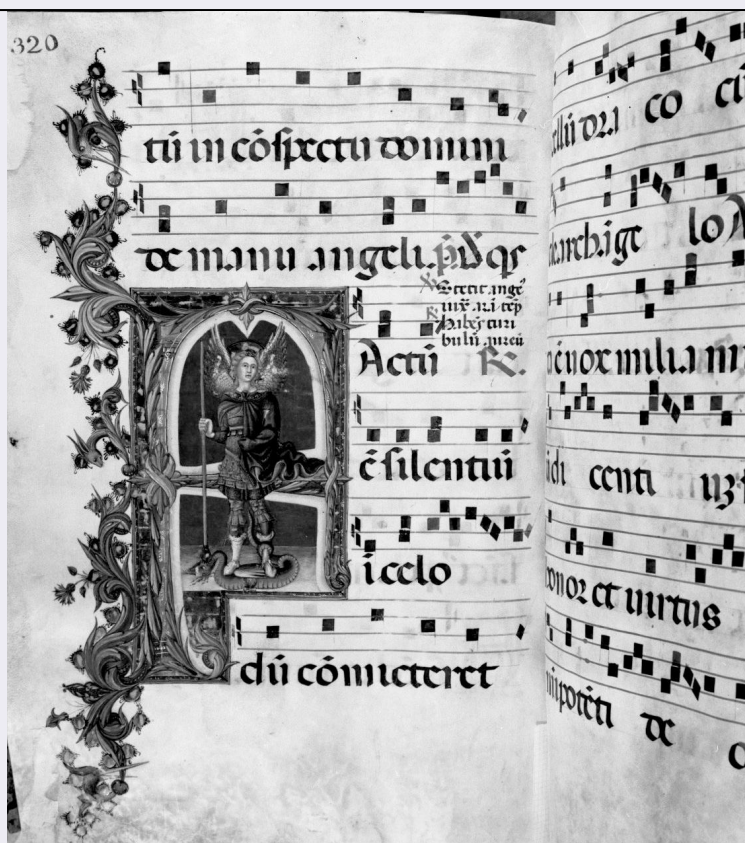 320
tū in cōspectu domini
de manu angeli. ps̄. Ds̄ qs
℣ Stetit ange
iux̄ arā tēp
℟ Habēs turi
bulū aureū
Actū ℟.
ē silentiū
i celo
dū cōmicteret
co
archāge lo
uox milia in
di centi uz
onor et uirtus
ipotēti de